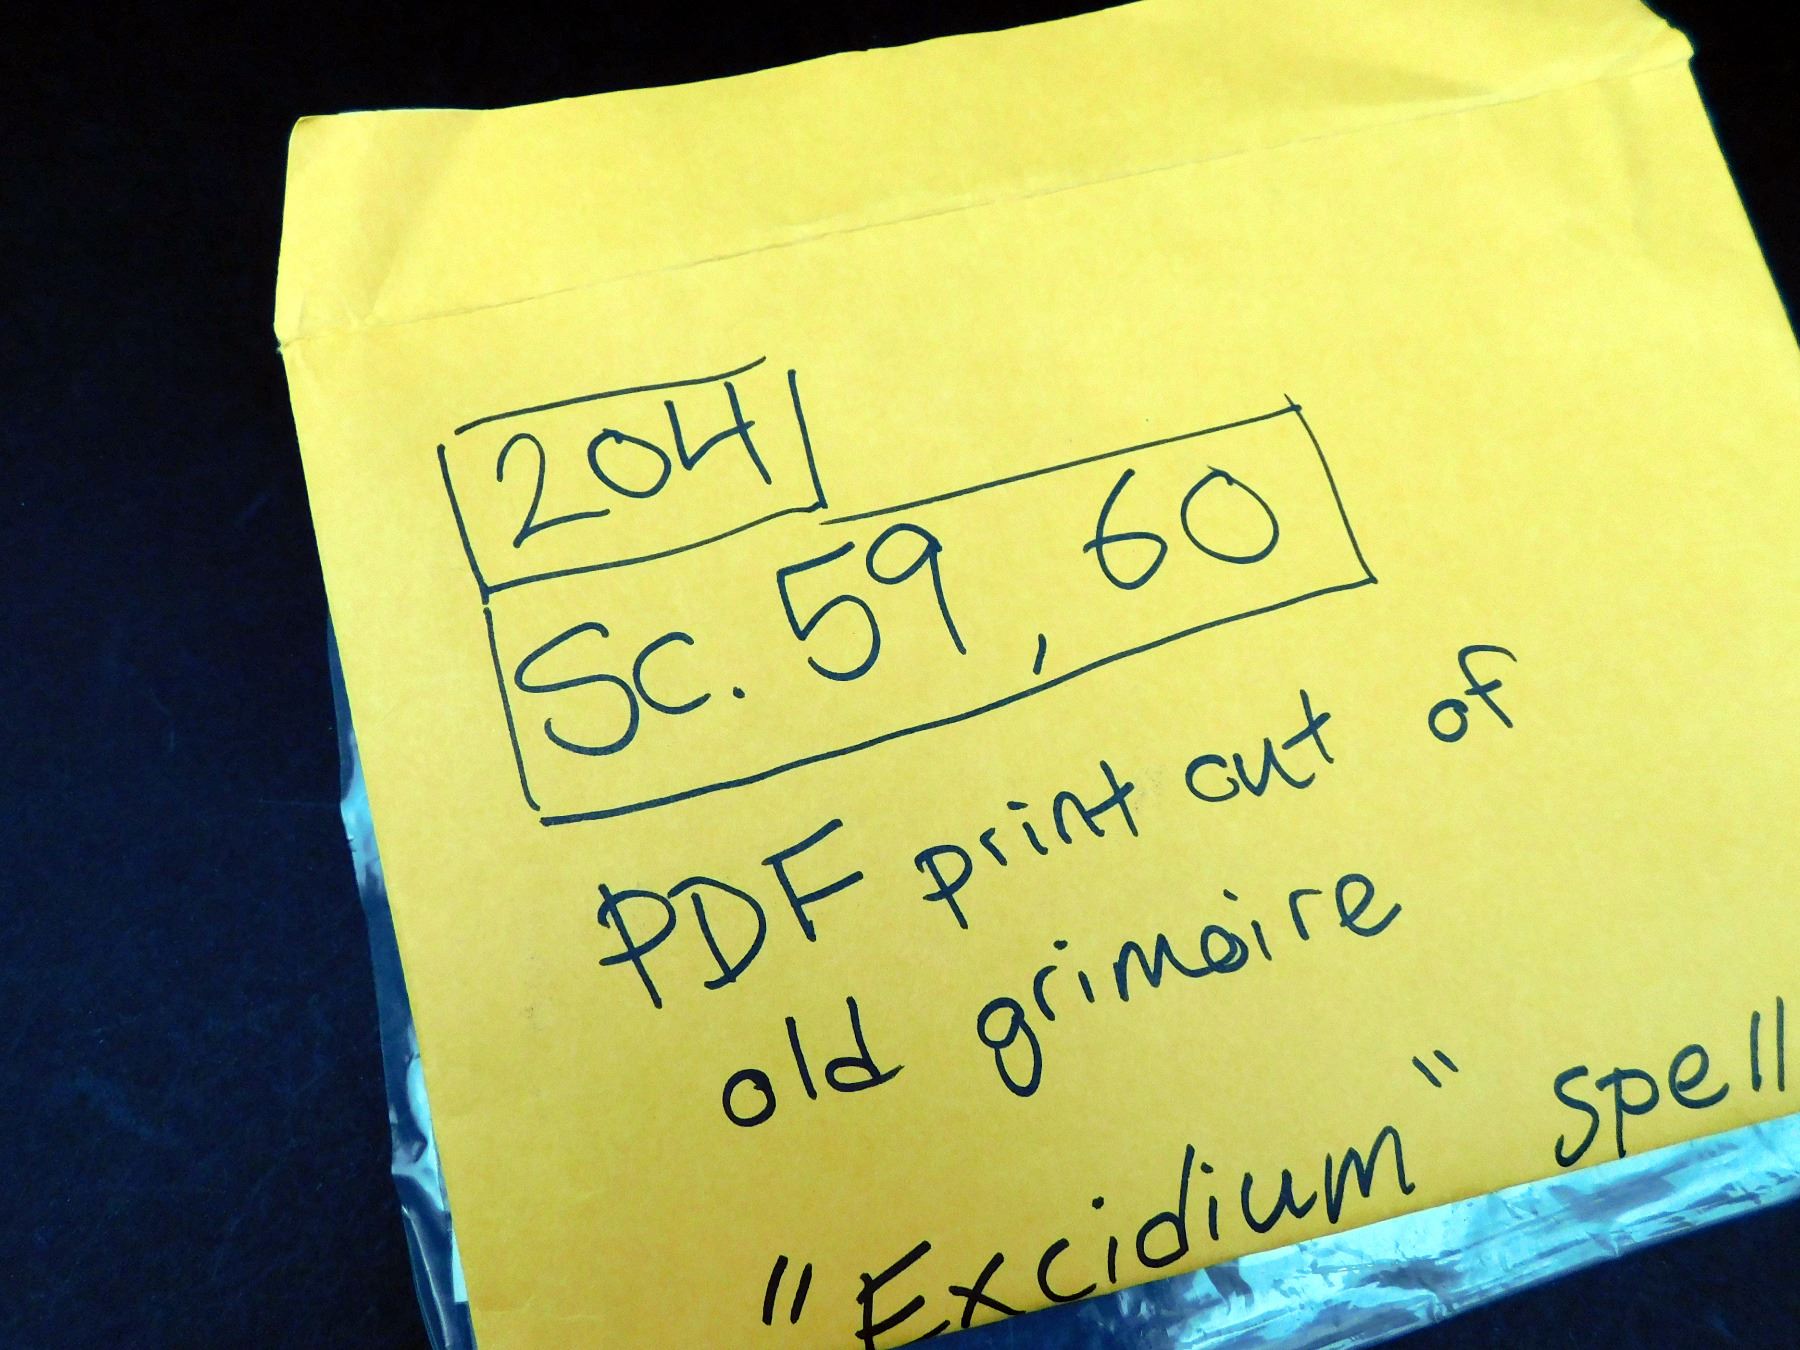 204
Sc. 59, 60
PDF print out of
old grimoire
"Excidium" spell